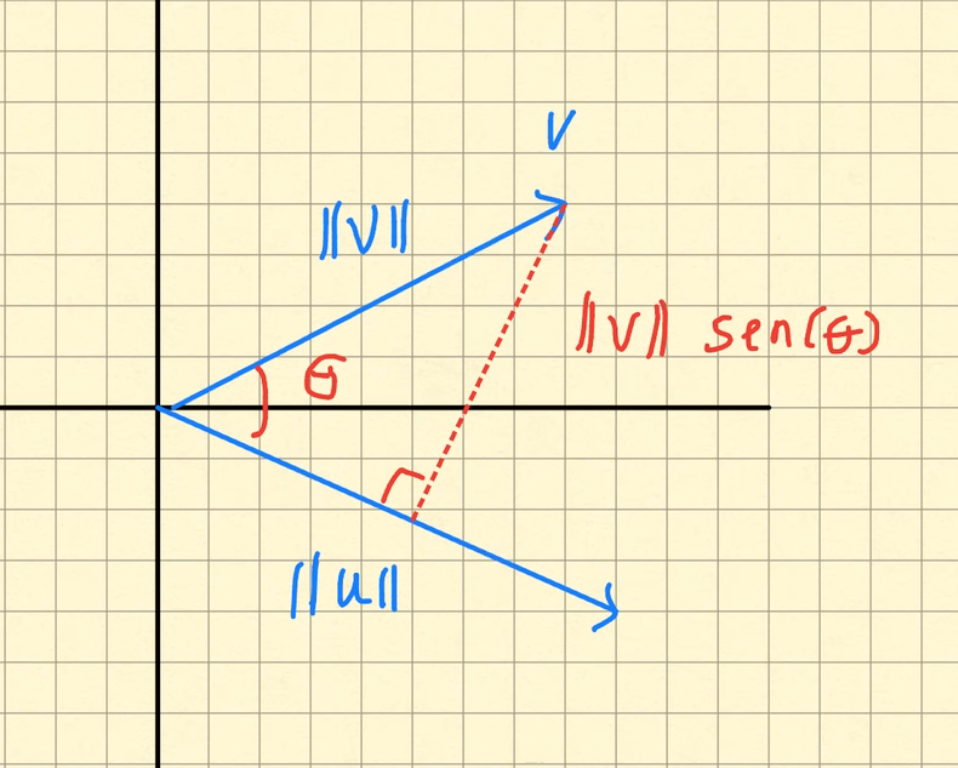 V
||V||
||V|| sen(θ)
θ
||u||